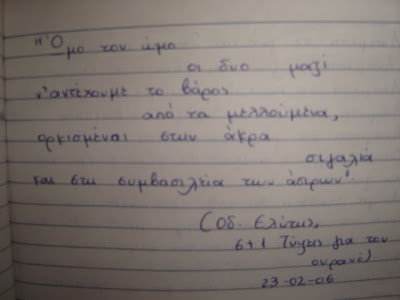 "Ώμο τον ώμο
οι δυο μαζί
ν'αντέχουμε το βάρος
από τα μελλούμενα,
ορκισμέναι στην άκρα
σιγαλιά
και στη συμβασιλεία των άστρων".
(Οδ. Ελύτης,
6+1 Τύψεις για τον
ουρανό)
23-02-06